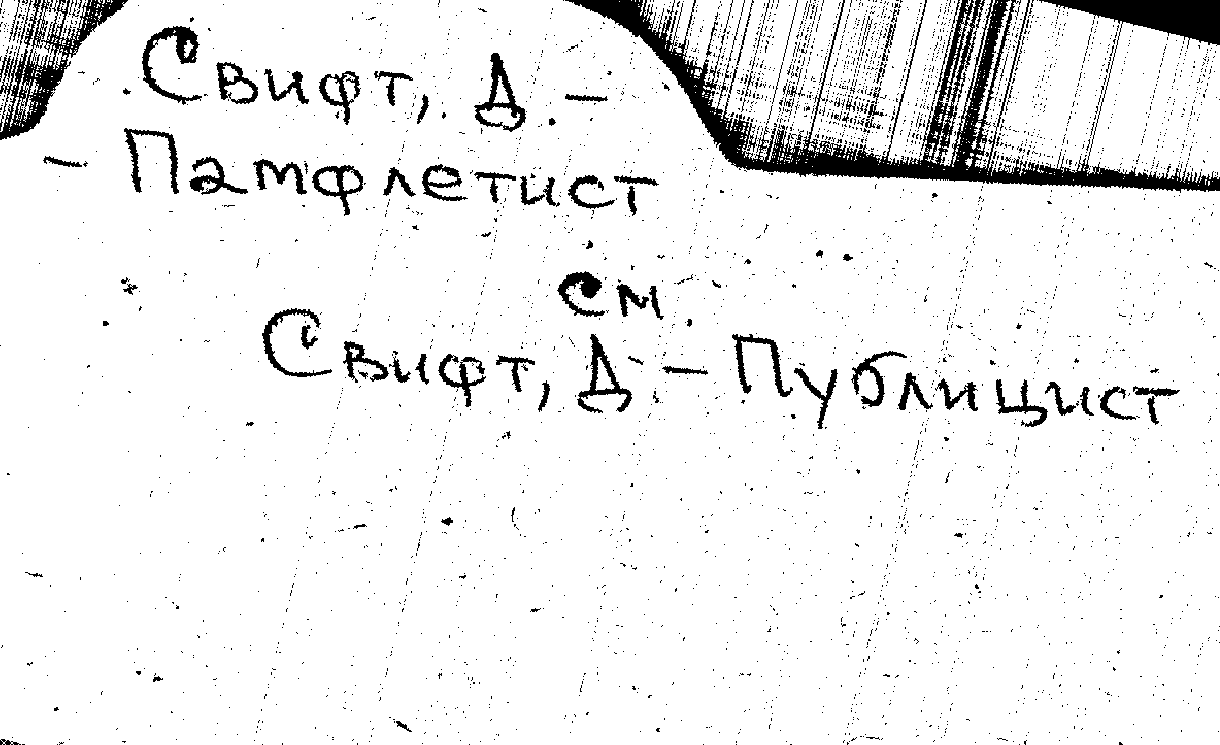 Свифт, Д. –
– Памфлетист
см.
Свифт, Д – Публицист